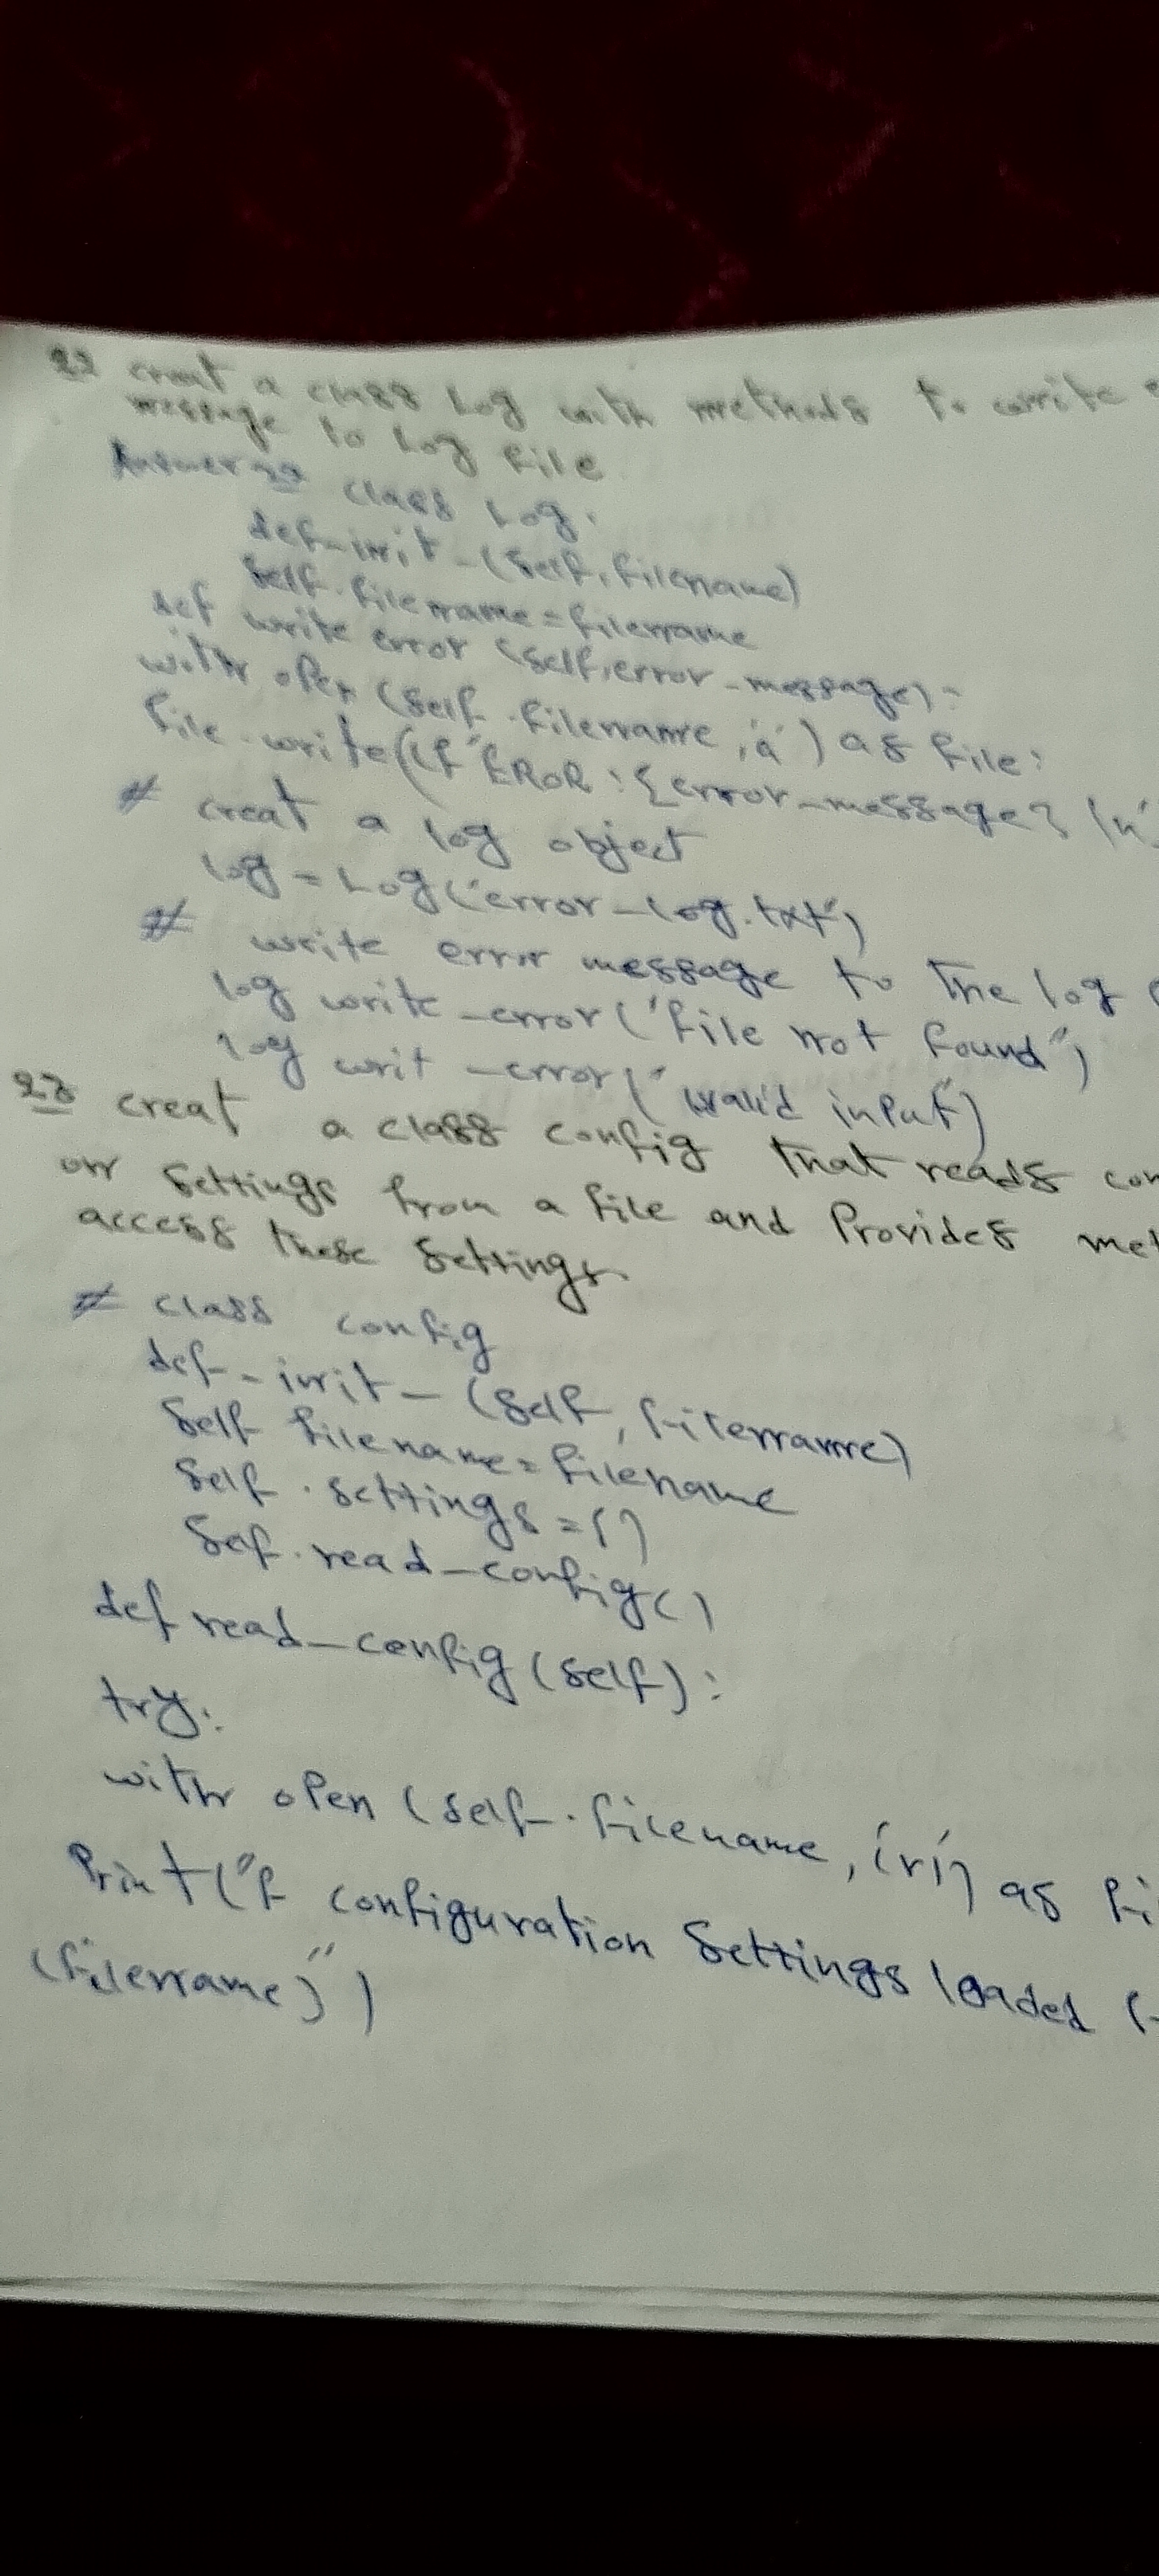 22 creat a class Log with methods to write e
message to Log file
Answer 22 class Log:
def-init-(self, filename)
self.filename=filename
def write error (self, error-message):
with open (self.filename, 'a') as file:
file.write((f"EROR:{error-message} \n'
# creat a log object
log = Log("error-log.txt")
# write error message to the log
log write-error("file not found")
log writ -error("invalid input")
23 creat a class config that reads con
on settings from a file and Provides met
access these settings.
# class config
def-init-(self, filename)
self filename=filename
self.settings={}
self.read-config()
def read-config(self):
try:
with open (self.filename, 'r') as fi
Print("f configuration settings loaded
(filename)")